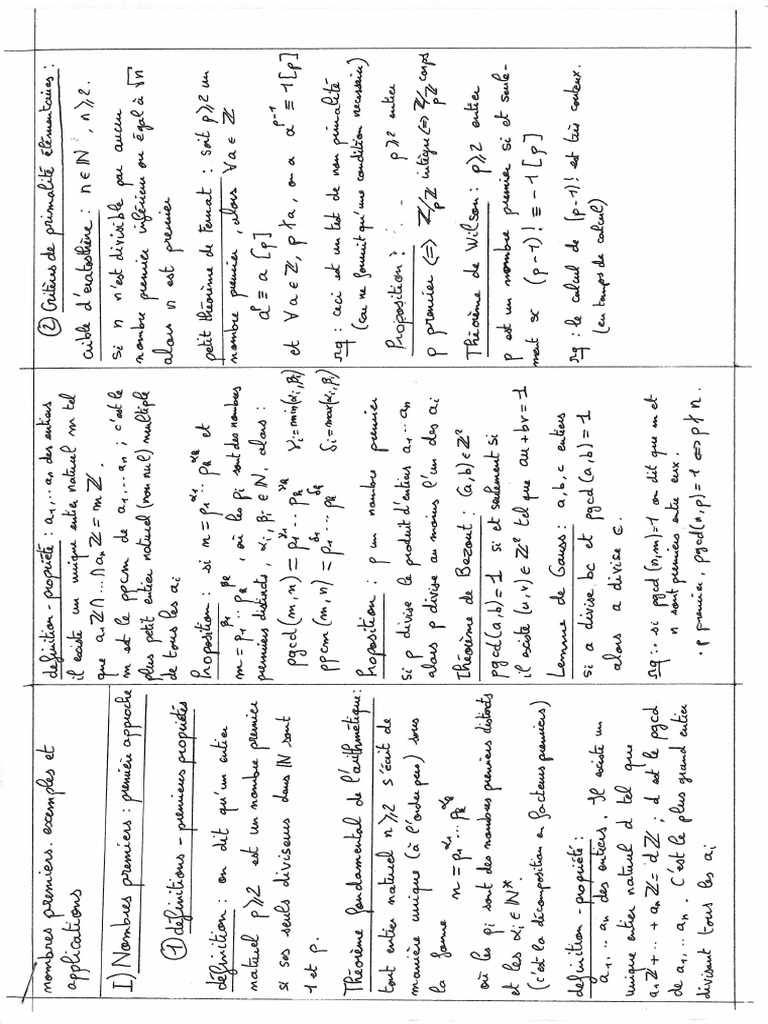 nombres premiers. exemples et
applications
I) Nombres premiers : première approche
① définitions - premières propriétés
définition : on dit qu'un entier
naturel p⩾2 est un nombre premier
si ses seuls diviseurs dans ℕ sont
1 et p.
Théorème fondamental de l'arithmétique :
tout entier naturel n⩾2 s'écrit de
manière unique (à l'ordre près) sous
la forme n = p₁^α₁ ... p_k^α_k
où les pi sont des nombres premiers distincts
et les αi ∈ ℕ*
(c'est la décomposition en facteurs premiers)
définition - propriété :
a₁,... an des entiers. Il existe un
unique entier naturel d tel que
a₁ℤ + ... + anℤ = dℤ ; d est le pgcd
de a₁,... an. C'est le plus grand entier
divisant tous les ai
définition - propriété : a₁,... an des entiers
il existe un unique entier naturel m tel
que a₁ℤ ∩ ... ∩ anℤ = mℤ.
m est le ppcm de a₁,... an ; c'est le
plus petit entier naturel (non nul) multiple
de tous les ai
Proposition : si n = p₁^α₁ ... p_k^α_k et
m = p₁^β₁ ... p_k^β_k, où les pi sont des nombres
premiers distincts, αi, βi ∈ ℕ, alors :
pgcd(m,n) = p₁^γ₁ ... p_k^γ_k γi = min(αi, βi)
ppcm(m,n) = p₁^δ₁ ... p_k^δ_k δi = max(αi, βi)
Proposition : p un nombre premier
si p divise le produit d'entiers a₁... an
alors p divise au moins l'un des ai
Théorème de Bezout : (a,b) ∈ ℤ²
pgcd(a,b) = 1 si et seulement si
il existe (u,v) ∈ ℤ² tel que au + bv = 1
Lemme de Gauss : a, b, c entiers
si a divise bc et pgcd(a,b) = 1
alors a divise c.
rq : . si pgcd(n,m) = 1 on dit que m et
n sont premiers entre eux.
. p premier, pgcd(n,p) = 1 ⇔ p∤n.
② Critères de primalité élémentaires :
crible d'eratosthène : n ∈ ℕ, n⩾2.
si n n'est divisible par aucun
nombre premier inférieur ou égal à √n
alors n est premier
petit théorème de Fermat : soit p⩾2 un
nombre premier, alors ∀a ∈ ℤ
a^p ≡ a [p]
et ∀a ∈ ℤ, p∤a, on a a^(p-1) ≡ 1 [p]
rq : ceci est un test de non primalité
(car ne fournit qu'une condition nécessaire)
Proposition : p⩾2 entier
p premier ⇔ ℤ/pℤ intègre ⇔ ℤ/pℤ corps
Théorème de Wilson : p⩾2 entier
p est un nombre premier si et seule-
ment si (p-1)! ≡ -1 [p]
rq : le calcul de (p-1)! est très couteux.
(en temps de calcul)